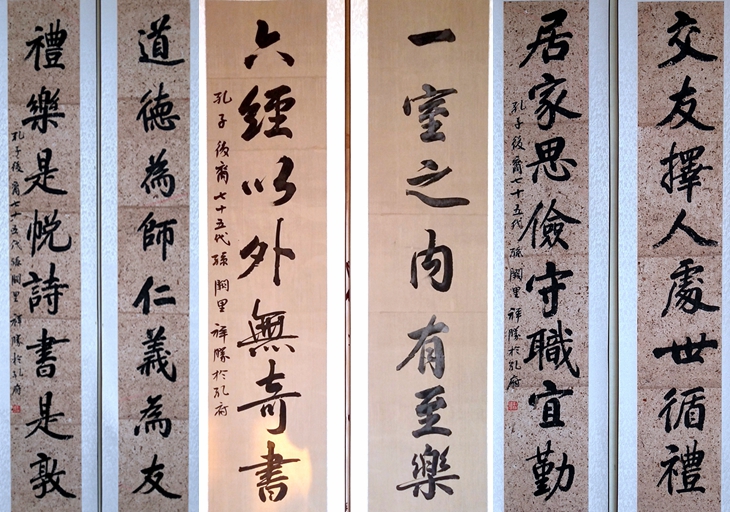 交友擇人處世循禮
居家思儉守職宜勤
孔子後裔七十五代孫闕里祥勝於孔府
一室之內有至樂
六經以外無奇書
孔子後裔七十五代孫闕里祥勝於孔府
道德為師仁義為友
禮樂是悅詩書是敦
孔子後裔七十五代孫闕里祥勝於孔府